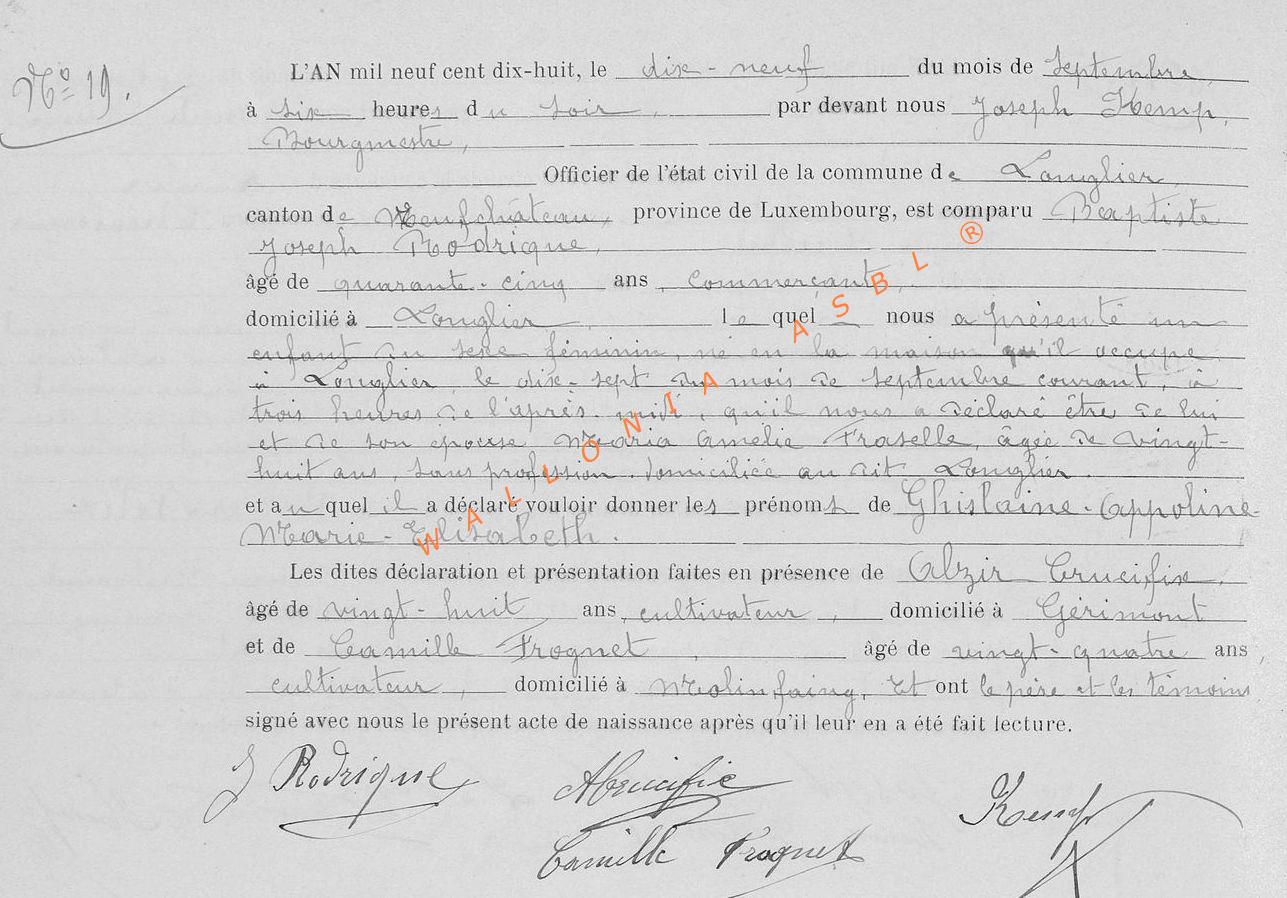 N° 19.
L'AN mil neuf cent dix-huit, le dix-neuf du mois de Septembre,
à six heures du soir, par devant nous Joseph Kemp,
Bourgmestre,
Officier de l'état civil de la commune de Longlier,
canton de Neufchâteau, province de Luxembourg, est comparu Baptiste
Joseph Rodrique,
âgé de quarante-cinq ans, commerçant,
domicilié à Longlier, lequel nous a présenté un
enfant du sexe féminin, né en la maison qu'il occupe
à Longlier, le dix-sept du mois de septembre courant, à
trois heures de l'après-midi, qu'il nous a déclaré être de lui
et de son épouse Maria Amélie Fraselle, âgée de vingt-
huit ans, sans profession, domiciliée au dit Longlier
et auquel il a déclaré vouloir donner les prénoms de Ghislaine-Appoline-
Marie-Elisabeth.
Les dites déclaration et présentation faites en présence de Alzir Crucifix,
âgé de vingt-huit ans, cultivateur, domicilié à Gérimont
et de Camille Frognet, âgé de vingt-quatre ans,
cultivateur, domicilié à Molinfaing, Et ont le père et les témoins
signé avec nous le présent acte de naissance après qu'il leur en a été fait lecture.
J Rodrique ACrucifix Kemp
Camille Frognet
WALLONIA ASBL ®